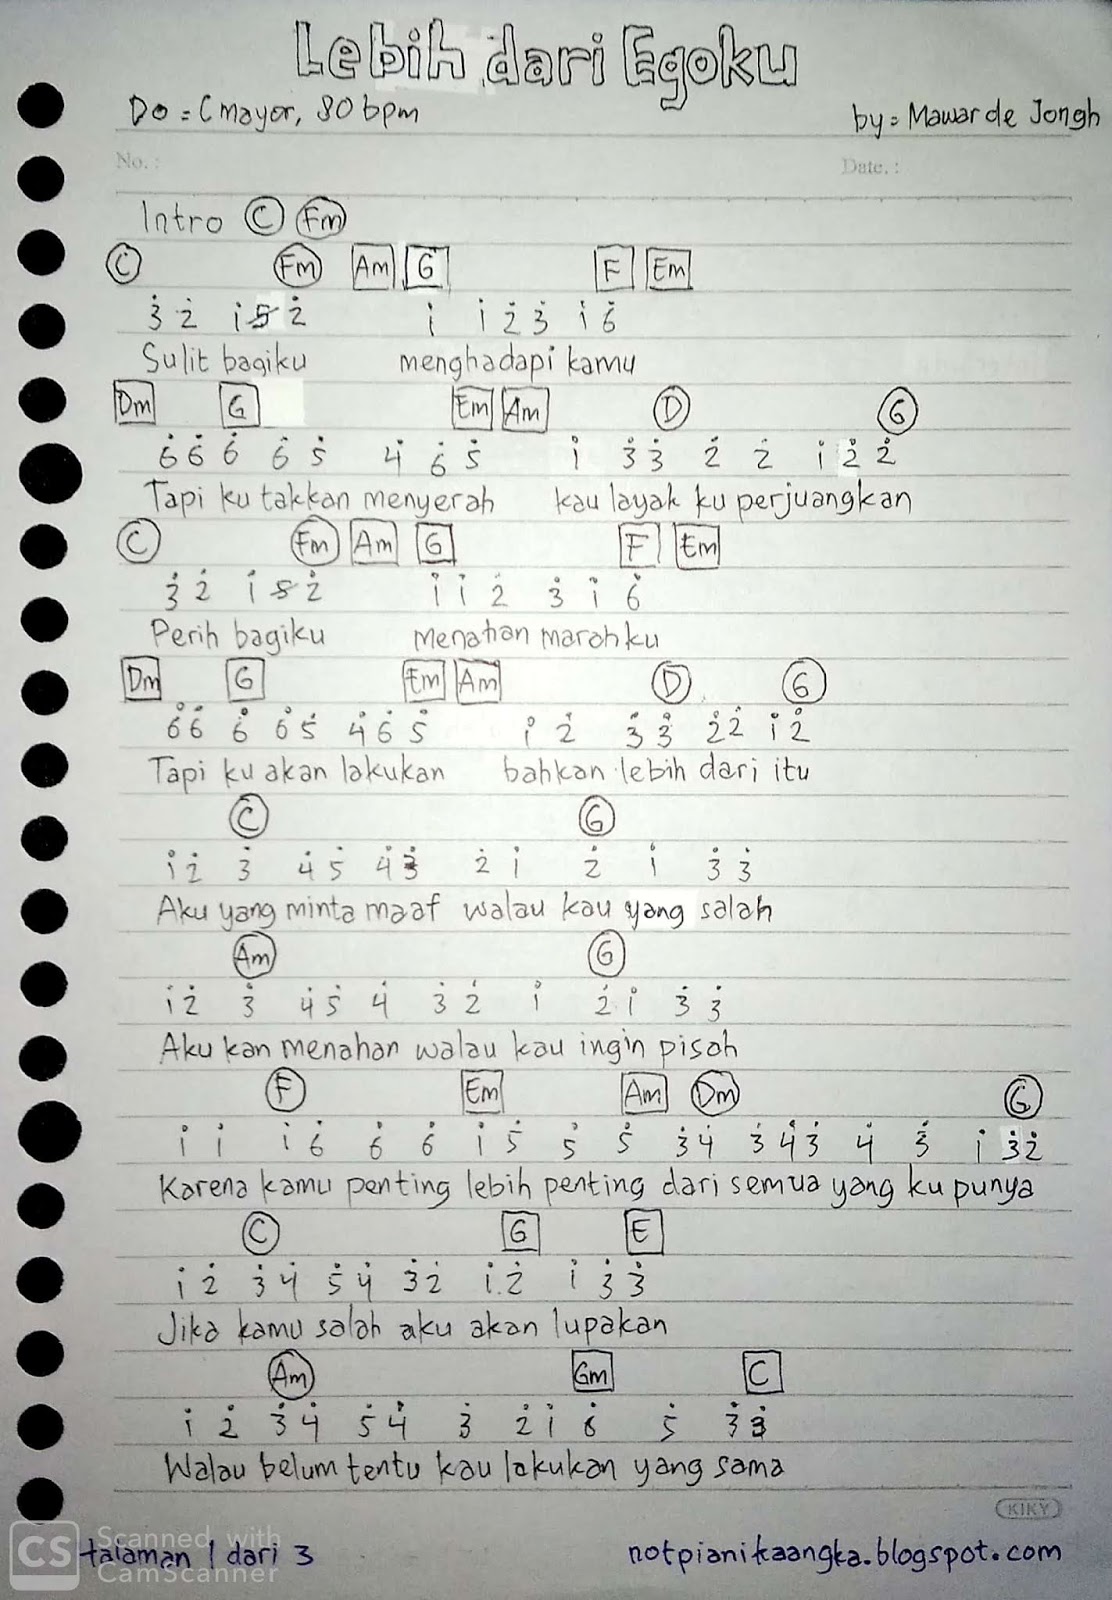 Lebih dari Egoku
Do = C mayor, 80 bpm by = Mawar de Jongh
No. : Date. :
Intro C Fm
C Fm Am G F Em
3̇ 2̇ 1̇ 5 2̇ 1̇ 1̇ 2̇ 3̇ 1̇ 6̇
Sulit bagiku menghadapi kamu
Dm G Em Am D G
6̇ 6̇ 6̇ 6̇ 5̇ 4̇ 6̇ 5̇ 1̇ 3̇ 3̇ 2̇ 2̇ 1̇ 2̇ 2̇
Tapi ku takkan menyerah kau layak ku perjuangkan
C Fm Am G F Em
3̇ 2̇ 1̇ 5 2̇ 1̇ 1̇ 2̇ 3̇ 1̇ 6̇
Perih bagiku Menahan marahku
Dm G Em Am D G
6̇ 6̇ 6̇ 6̇ 5̇ 4̇ 6̇ 5̇ 1̇ 2̇ 3̇ 3̇ 2̇ 2̇ 1̇ 2̇
Tapi ku akan lakukan bahkan lebih dari itu
C G
1̇ 2̇ 3̇ 4̇ 5̇ 4̇ 3̇ 2̇ 1̇ 2̇ 1̇ 3̇ 3̇
Aku yang minta maaf walau kau yang salah
Am G
1̇ 2̇ 3̇ 4̇ 5̇ 4̇ 3̇ 2̇ 1̇ 2̇ 1̇ 3̇ 3̇
Aku kan menahan walau kau ingin pisah
F Em Am Dm G
1̇ 1̇ 1̇ 6̇ 6̇ 6̇ 1̇ 5̇ 5̇ 5̇ 3̇ 4̇ 3̇ 4̇ 3̇ 4̇ 3̇ 1̇ 3̇ 2̇
Karena kamu penting lebih penting dari semua yang ku punya
C G E
1̇ 2̇ 3̇ 4̇ 5̇ 4̇ 3̇ 2̇ 1̇ 2̇ 1̇ 3̇ 3̇
Jika kamu salah aku akan lupakan
Am Gm C
1̇ 2̇ 3̇ 4̇ 5̇ 4̇ 3̇ 2̇ 1̇ 6̇ 5̇ 3̇ 3̇
Walau belum tentu kau lakukan yang sama
KIKY
CS Scanned with
CamScanner
Halaman 1 dari 3 notpianikaangka.blogspot.com